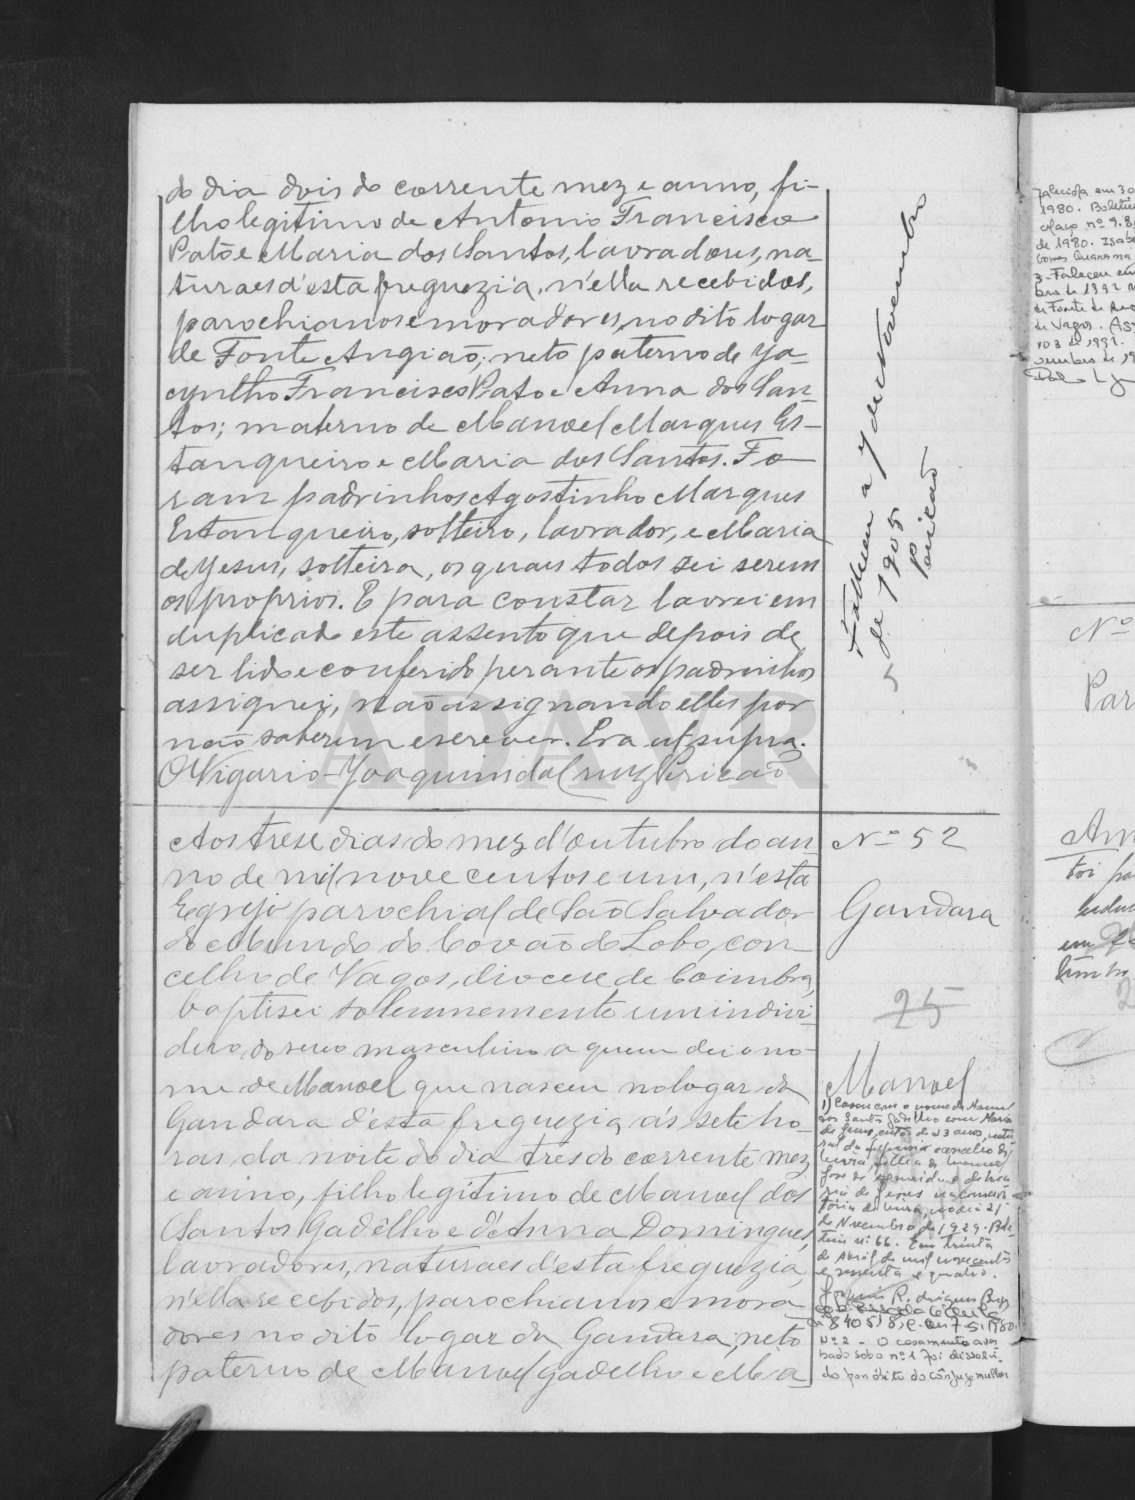 do dia dois do corrente mez e anno, fi-
lho legitimo de Antonio Francisco
Patõ e Maria dos Santos, lavradores, na-
turaes d'esta freguezia, n'ella recebidos,
parochianos e moradores, no dito logar
de Fonte Angião; neto paterno de Ja-
cyntho Francisco Pato e Anna dos San-
tos; materno de Manoel Marques Es-
tanqueiro e Maria dos Santos. Fo-
ram padrinhos Agostinho Marques
Estanqueiro, solteiro, lavrador, e Maria
de Jesus, solteira, os quaes todos sei serem
os proprios. E para constar lavrei em
duplicado este assento que depois de
ser lido e conferido perante os padrinhos
assignei, não assignando elles por
não saberem escrever. Era ut supra.
O Vigario - Joaquim da Cruz Pericão
Falleceu a 7 de Novembro
de 1905
Pericão
5
Aos trese dias do mez d'Outubro do an-
no de mil nove centos e um, n'esta
Egreja parochial de São Salvador
do Mundo do Covão do Lobo, con-
celho de Vagos, diocese de Coimbra,
baptisei solemnemente um indivi-
duo do sexo masculino a quem dei o no-
me de Manoel que nasceu no logar da
Gandara d'esta freguezia, ás sete ho-
ras da noite do dia tres do corrente mez
e anno, filho legitimo de Manoel dos
Santos Gadêlho e d'Anna Domingues,
lavradores, naturaes d'esta freguezia,
n'ella recebidos, parochianos e mora-
dores no dito logar da Gandara; neto
paterno de Manoel Gadelho e Ma
Nº 52
Gandara
25
Manoel
1) Casou com o nome de Manuel
dos Santos Gadelho com Maria
de Jesus, de 23 anos, natu-
ral da freguesia concelho de
filha de Manuel
de Jesus
no dia 21
de Novembro de 1929. Bole-
tim nº 66. Em trinta
de Abril de mil novecentos
e sessenta e quatro.
R. 
Nº 2 - O casamento aver-
bado sob o nº 1 foi dissolvi-
do por óbito do cônjuge mulher
Falecida em 30
1980. Boletim
nº 9.8
de 1980. Isabel
3- Faleceu em
bro de 1992
de Fonte de
de Vagos.
103 de 1992.
Nº
Par
An
foi
ADAVR